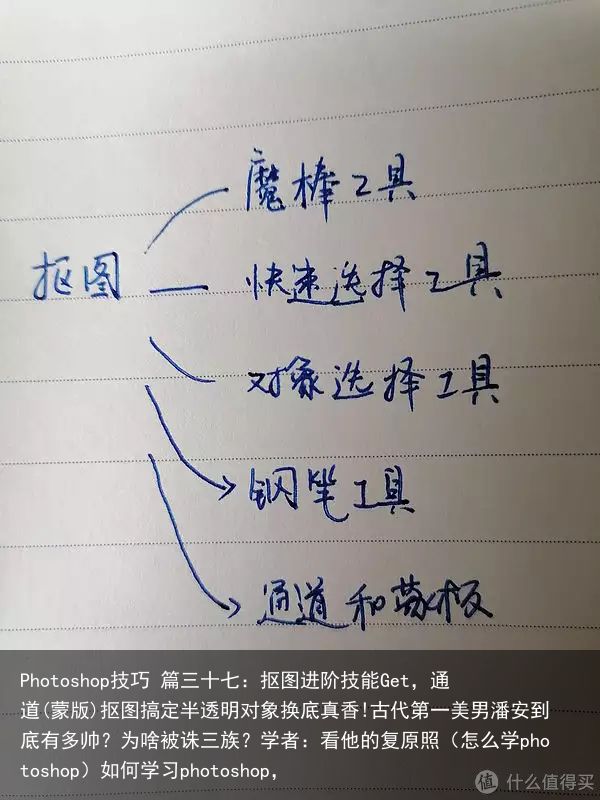 魔棒工具
抠图
快速选择工具
对象选择工具
钢笔工具
通道和蒙板
Photoshop技巧 篇三十七：抠图进阶技能Get，通
道(蒙版)抠图搞定半透明对象换底真香!古代第一美男潘安到
底有多帅？为啥被诛三族？学者：看他的复原照（怎么学pho
toshop）如何学习photoshop，
值 什么值得买